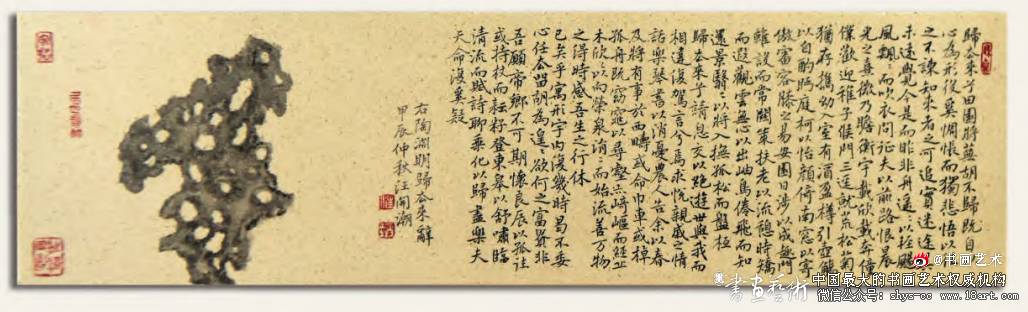 歸去来兮田園將蕪胡不歸既自以
心為形役奚惆悵而獨悲悟以
之不諫知来者之可追實迷途
未遠覺今是而昨非舟遥〻以輕颺
風飄〻而吹衣問征夫以前路恨晨
光之熹微乃瞻衡宇載欣載奔僮
僕歡迎稚子候門三逕就荒松菊
猶存攜幼入室有酒盈樽引壺觴
以自酌眄庭柯以怡顏倚南窓以寄
傲審容膝之易安園日涉以成趣門
雖設而常關策扶老以流憩時矯首
而遐觀雲無心以出岫鳥倦飛而知
還景翳〻以將入撫孤松而盤桓
歸去来兮請息交以絶遊世與我而
相違復駕言兮焉求悅親戚之情
話樂琴書以消憂農人告余以春
及將有事於西疇或命巾車或棹
孤舟既窈窕以尋壑亦崎嶇而經丘
木欣〻以向榮泉涓〻而始流善万物
之得時感吾生之行休
已矣乎寓形宇内復幾時曷不委
心任去留胡為遑〻欲何之富貴非
吾願帝鄉不可期懷良辰以孤往
或杖而耘耔登東皋以舒嘯臨
清流而賦詩聊乘化以歸盡樂夫
天命復奚疑
右陶淵明歸去来辭
甲辰仲秋汪開潮
@书画艺术
書画藝術
中国最大的书画艺术权威机构
微信公众号: shys-cc www.18art.com